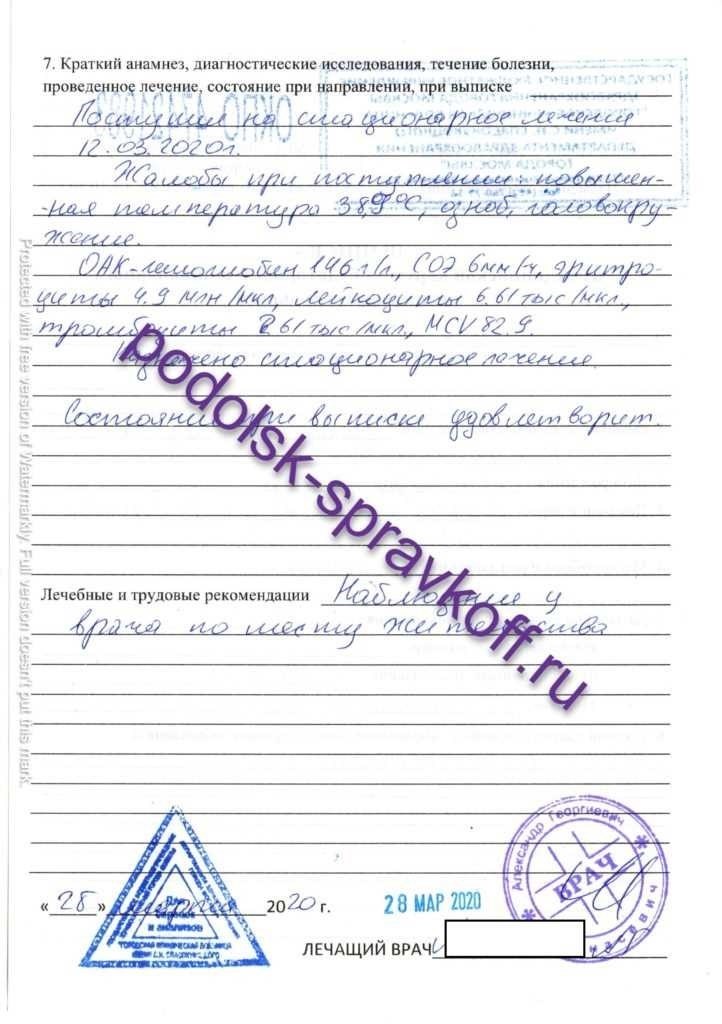 7. Краткий анамнез, диагностические исследования, течение болезни,
проведенное лечение, состояние при направлении, при выписке
ОКПО
Поступил на стационарное лечение
12.03.2020г.
Жалобы при поступлении: повышен-
-ная температура 38,9°С, озноб, головокру-
жение.
ОАК-гемоглобин 146 г/л, СОЭ 6 мм/ч, эритро-
циты 4.9 млн/мкл, лейкоциты 6.61 тыс/мкл,
тромбоциты 261 тыс/мкл, MCV 82.9.
Назначено стационарное лечение.
Состояние при выписке удовлетворит.
podolsk-spravkoff.ru
Protected with free version of Watermarkly. Full version doesn't put this mark.
Лечебные и трудовые рекомендации Наблюдение у
врача по месту жительства
Александр Георгиевич
ВРАЧ
Для
справок
и анализов
ГОРОДСКАЯ КЛИНИЧЕСКАЯ БОЛЬНИЦА
« 28 » марта 2020 г.
28 МАР 2020
ЛЕЧАЩИЙ ВРАЧ